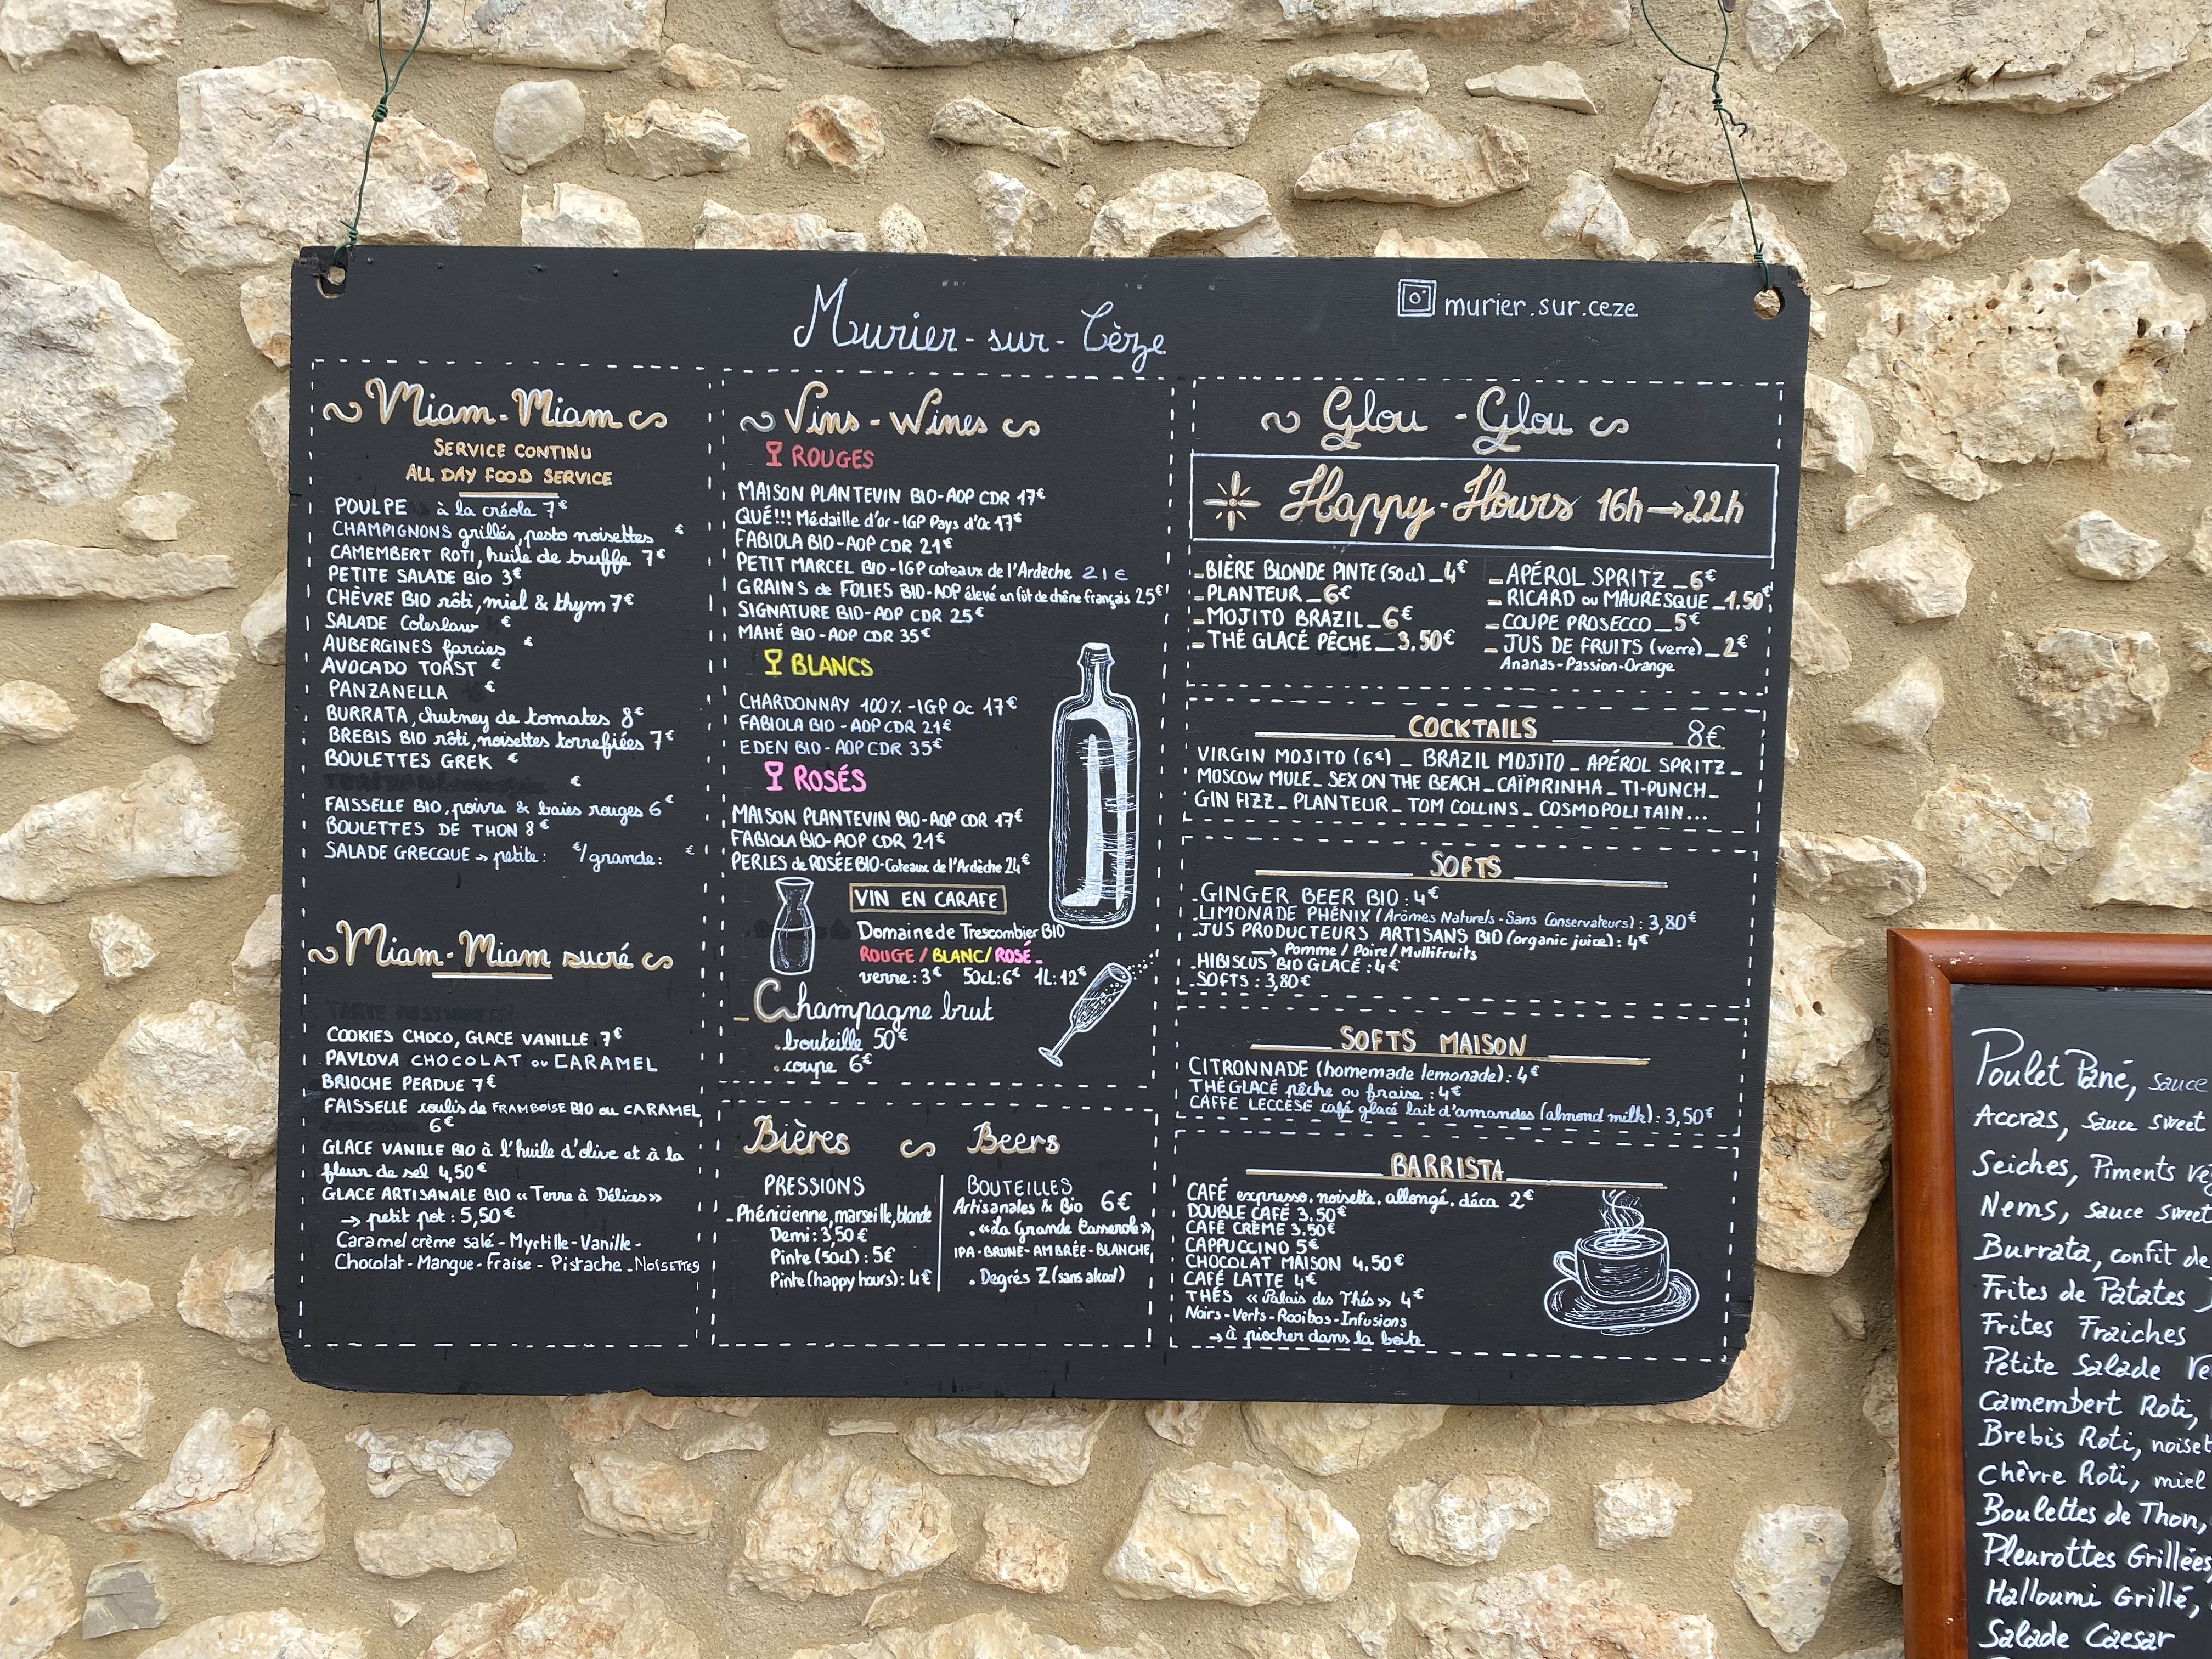 Murier-sur-Cèze
murier.sur.ceze
Miam-Miam
SERVICE CONTINU
ALL DAY FOOD SERVICE
POULPE à la créole 7€
CHAMPIGNONS grillés, pesto noisettes €
CAMEMBERT ROTI, huile de truffe 7€
PETITE SALADE BIO 3€
CHÈVRE BIO rôti, miel & thym 7€
SALADE Coleslaw €
AUBERGINES farcies €
AVOCADO TOAST €
PANZANELLA €
BURRATA, chutney de tomates 8€
BREBIS BIO rôti, noisettes torrefiées 7€
BOULETTES GREK €
€
FAISSELLE BIO, poivre & baies rouges 6€
BOULETTES DE THON 8€
SALADE GRECQUE → petite: €/grande: €
Miam-Miam sucré
COOKIES CHOCO, GLACE VANILLE 7€
PAVLOVA CHOCOLAT ou CARAMEL
BRIOCHE PERDUE 7€
FAISSELLE coulis de FRAMBOISE BIO ou CARAMEL
6€
GLACE VANILLE BIO à l'huile d'olive et à la
fleur de sel 4,50€
GLACE ARTISANALE BIO «Terre à Délices»
→ petit pot: 5,50€
Caramel crème salé - Myrtille - Vanille -
Chocolat - Mangue - Fraise - Pistache - NOISETTES
Vins - Wines
ROUGES
MAISON PLANTEVIN BIO-AOP CDR 17€
QUÉ!!! Médaille d'or - IGP Pays d'Oc 17€
FABIOLA BIO-AOP CDR 21€
PETIT MARCEL BIO-IGP coteaux de l'Ardèche 21€
GRAINS de FOLIES BIO-AOP élevé en fût de chêne français 25€
SIGNATURE BIO-AOP CDR 25€
MAHÉ BIO-AOP CDR 35€
BLANCS
CHARDONNAY 100% -IGP Oc 17€
FABIOLA BIO-AOP CDR 21€
EDEN BIO-AOP CDR 35€
ROSÉS
MAISON PLANTEVIN BIO-AOP CDR 17€
FABIOLA BIO-AOP CDR 21€
PERLES de ROSÉE BIO-Coteaux de l'Ardèche 24€
VIN EN CARAFE
Domaine de Trescombier BIO
ROUGE / BLANC / ROSÉ -
verre: 3€ 50cl: 6€ 1L: 12€
- Champagne brut
. bouteille 50€
. coupe 6€
Bières Beers
PRESSIONS
- Phénicienne, marseille, blonde
Demi: 3,50€
Pinte (50cl): 5€
Pinte (happy hours): 4€
BOUTEILLES
Artisanales & Bio 6€
. «La Grande Casserole»,
IPA - BRUNE - AMBRÉE - BLANCHE,
. Degrés Z (sans alcool)
Glou - Glou
Happy-Hours 16h → 22h
- BIÈRE BLONDE PINTE (50cl) _ 4€
- PLANTEUR _ 6€
- MOJITO BRAZIL _ 6€
- THÉ GLACÉ PÊCHE _ 3,50€
- APÉROL SPRITZ _ 6€
- RICARD ou MAURESQUE _ 1.50€
- COUPE PROSECCO _ 5€
- JUS DE FRUITS (verre) _ 2€
Ananas-Passion-Orange
COCKTAILS 8€
VIRGIN MOJITO (6€) _ BRAZIL MOJITO _ APÉROL SPRITZ _
MOSCOW MULE _ SEX ON THE BEACH _ CAÏPIRINHA _ TI-PUNCH _
GIN FIZZ _ PLANTEUR _ TOM COLLINS _ COSMOPOLITAIN...
SOFTS
- GINGER BEER BIO: 4€
- LIMONADE PHÉNIX (Arômes Naturels - Sans Conservateurs): 3,80€
- JUS PRODUCTEURS ARTISANS BIO (organic juice): 4€
→ Pomme / Poire / Multifruits
- HIBISCUS BIO GLACÉ: 4€
- SOFTS: 3,80€
SOFTS MAISON
CITRONNADE (homemade lemonade): 4€
THÉ GLACÉ pêche ou fraise: 4€
CAFFE LECCESE café glacé lait d'amandes (almond milk): 3,50€
BARRISTA
CAFÉ expresso. noisette. allongé. déca 2€
DOUBLE CAFÉ 3.50€
CAFÉ CRÈME 3.50€
CAPPUCCINO 5€
CHOCOLAT MAISON 4.50€
CAFÉ LATTE 4€
THÉS «Palais des Thés» 4€
Noirs - Verts - Rooibos - Infusions
→ à piocher dans la boîte
Poulet Pané, sauce
Accras, sauce sweet
Seiches, Piments
Nems, sauce sweet
Burrata, confit de
Frites de Patates
Frites Fraiches
Petite Salade
Camembert Roti,
Brebis Roti, noiset
Chêvre Roti, miel
Boulettes de Thon,
Pleurottes Grillées,
Halloumi Grillé,
Salade Caesar